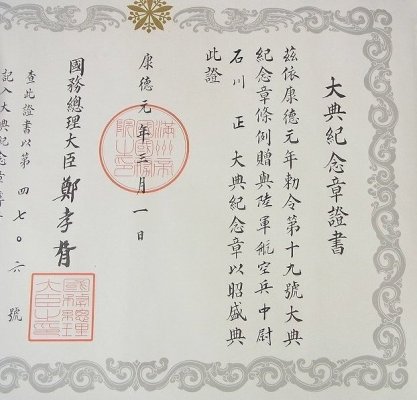 大典紀念章證書
茲依康德元年勅令第十九號大典
紀念章條例贈與陸軍航空兵中尉
石川 正 大典紀念章以昭盛典
此證
康德元年三月一日
國務總理大臣 鄭孝胥
查此證書以第四七〇六號
記入大典紀念章